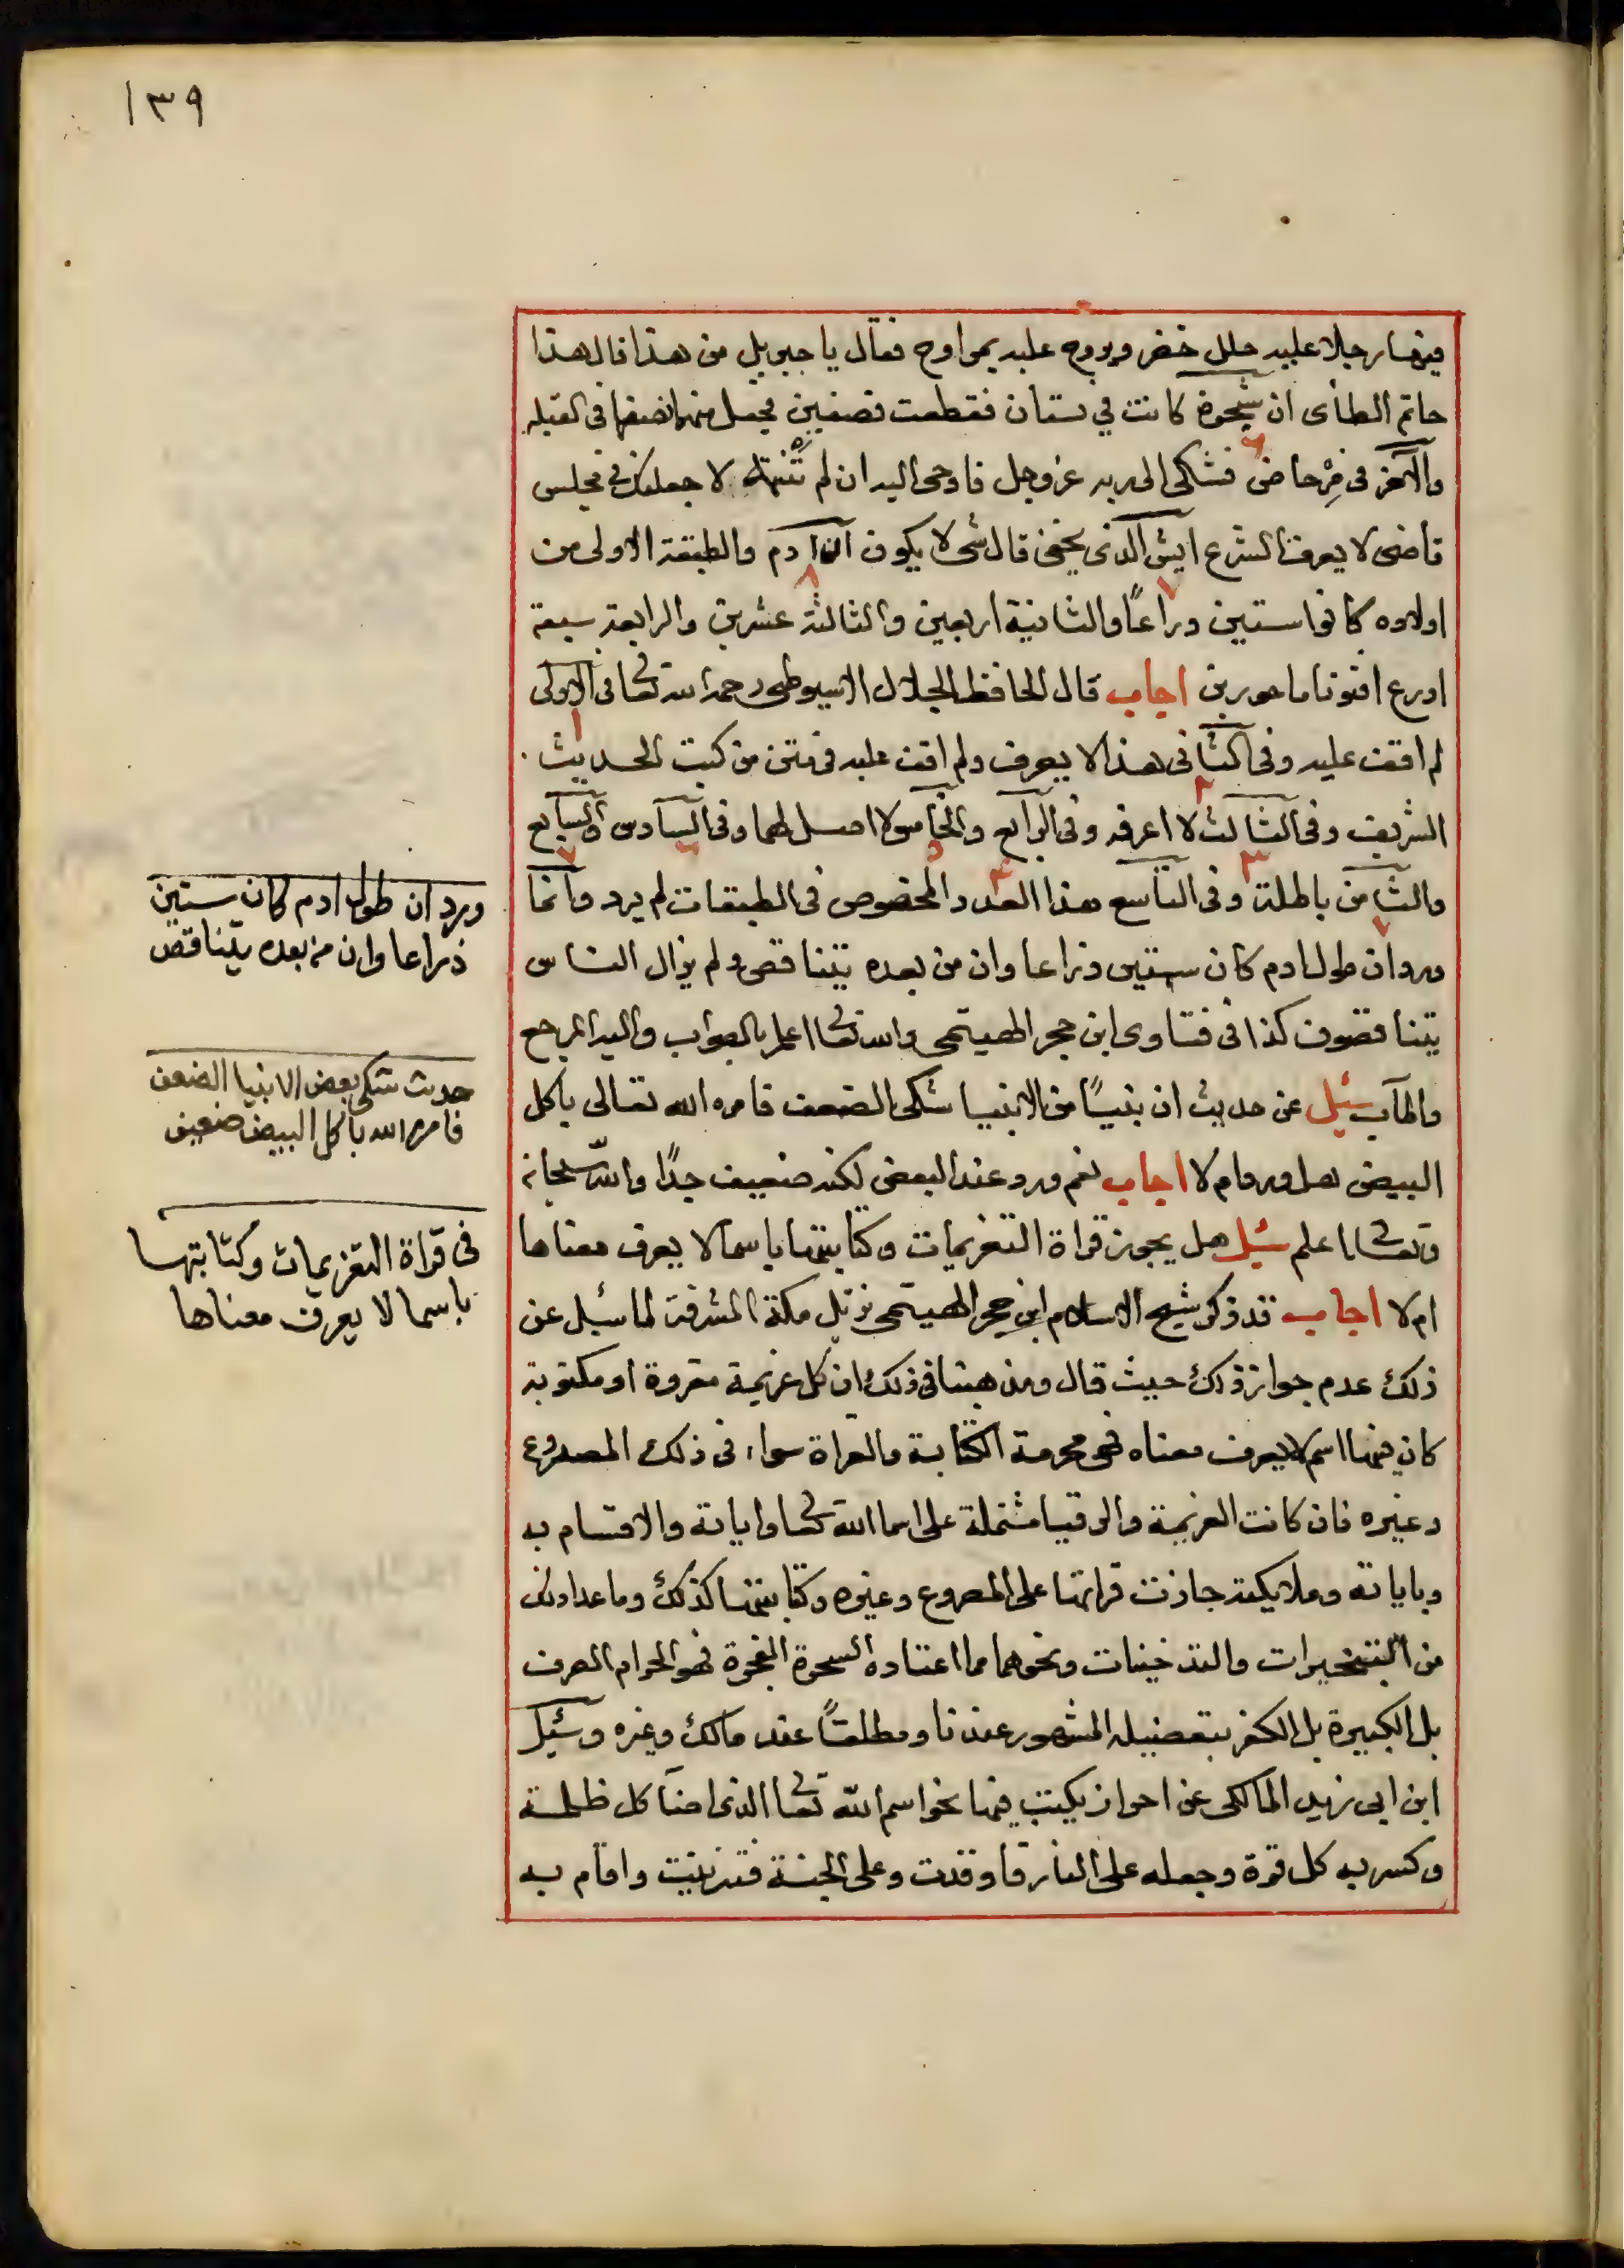 ١٣٩
فيها رجلا عليه حلل خضر ويروح عليه بمراوح فقال يا جبريل من هذا قال هذا
حاتم الطأى ان شجرة كانت في بستان فقطعت نصفين فجعل منها نصفها في القبله
والآخر في مرحاض فشكى الى ربه عز وجل فاوحى اليه ان لم تنته لاجعلنك في مجلس
قاضى لا يعرف الشرع ايش الذى يخفى قال شى لا يكون ان ادم والطبقة الاولى من
اولاده كانوا ستين دراعًا والثانية اربعين والثالثة عشرين والرابعة سبعة
ادرع افتونا ماجورين اجاب قال الحافظ الجلال الاسيوطى رحمه الله تعا فى الاولى
لم اقف عليه وفى الثانى هذا لا يعرف ولم اقف عليه فى متن من كتب الحديث
الشريف وفى الثالث لا اعرفه وفى الرابع والخامس لا اصل لهما وفى السادس والسابع
والثامن باطلة وفى التاسع هذا العدد المخصوص فى الطبقات لم يرد وانما
ورد ان طول ادم كان ستين ذراعا وان من بعده يتناقص ولم يزال الناس
يتناقصون كذا فى فتاوى ابن حجر الهيتمى والله تعا اعلم بالصواب واليه المرجع
والمآب سئيل عن حديث ان نبيًا من الانبيا شكى الضعف فامره الله تعالى باكل
البيض هل ورد ام لا اجاب نعم ورد عند البعض لكنه ضعيف جدًا والله سبحانه
وتعالى اعلم سئيل هل يجوز قراة التعزيمات وكتابتها باسما لا يعرف معناها
ام لا اجاب قد ذكر شيخ الاسلام ابن حجر الهيتمى نزيل مكة المشرفة لما سئيل عن
ذلك عدم جواز ذلك حيث قال ومذهبنا فى ذلك ان كل عزيمة مقروة او مكتوبة
كان فيها اسم لا يعرف معناه فهى محرمة الكتابة والقراة سواء فى ذلك المصروع
وغيره فان كانت العزيمة والرقيا مشتملة على اسما الله تعا واياته والاقسام به
وباياته وملايكته جازت قراتها على المصروع وغيره وكتابتها كذلك وما عدا ذلك
من التبخيرات والتدخينات ونحوهما مما اعتاده السحرة الفجرة فهو الحرام الصرف
بل الكبيرة بل الكفر بتفصيله المشهور عندنا ومطلقًا عند مالك وغيره وسئيل
ابن ابى زيد المالكى عن احراز يكتب فيها نحو اسم الله تعا الذى اضآ كل ظلمة
وكسر به كل قوة وجعله على النار فاوقدت وعلى الجنة فتزينت واقام به
ورد ان طول ادم كان ستين
ذراعا وان من بعده يتناقص
حديث شكى بعض الانبيا الضعف
فامره الله باكل البيض ضعيف
فى قراة التعزيمات وكتابتها
باسما لا يعرف معناها